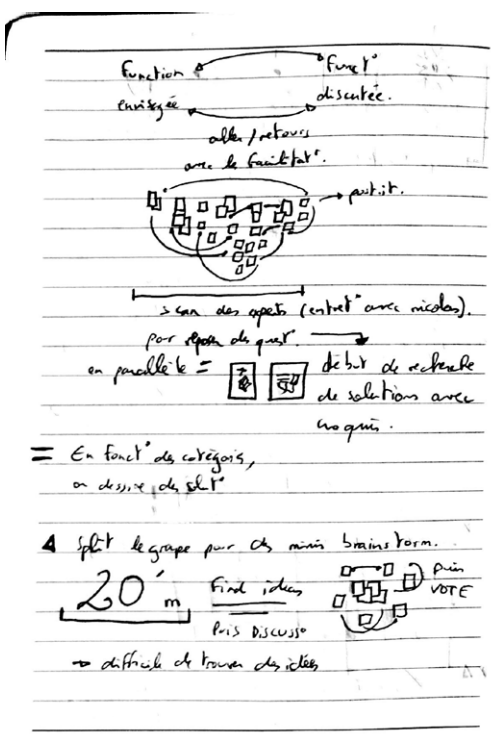 Function Funct°
envisagée discutée.
aller/retours
avec le facilitat°.
post.it.
scan des experts (entret° avec nicolas).
par répon des quest°.
en parallèle = début de recherche
de solutions avec
croquis.
= En fonct° des catégories,
on dessine des slut°
Split le groupe pour des minis brainstorm.
20' m Find ideas puis
VOTE
Puis DISCUSS°
→ difficile de trouver des idées